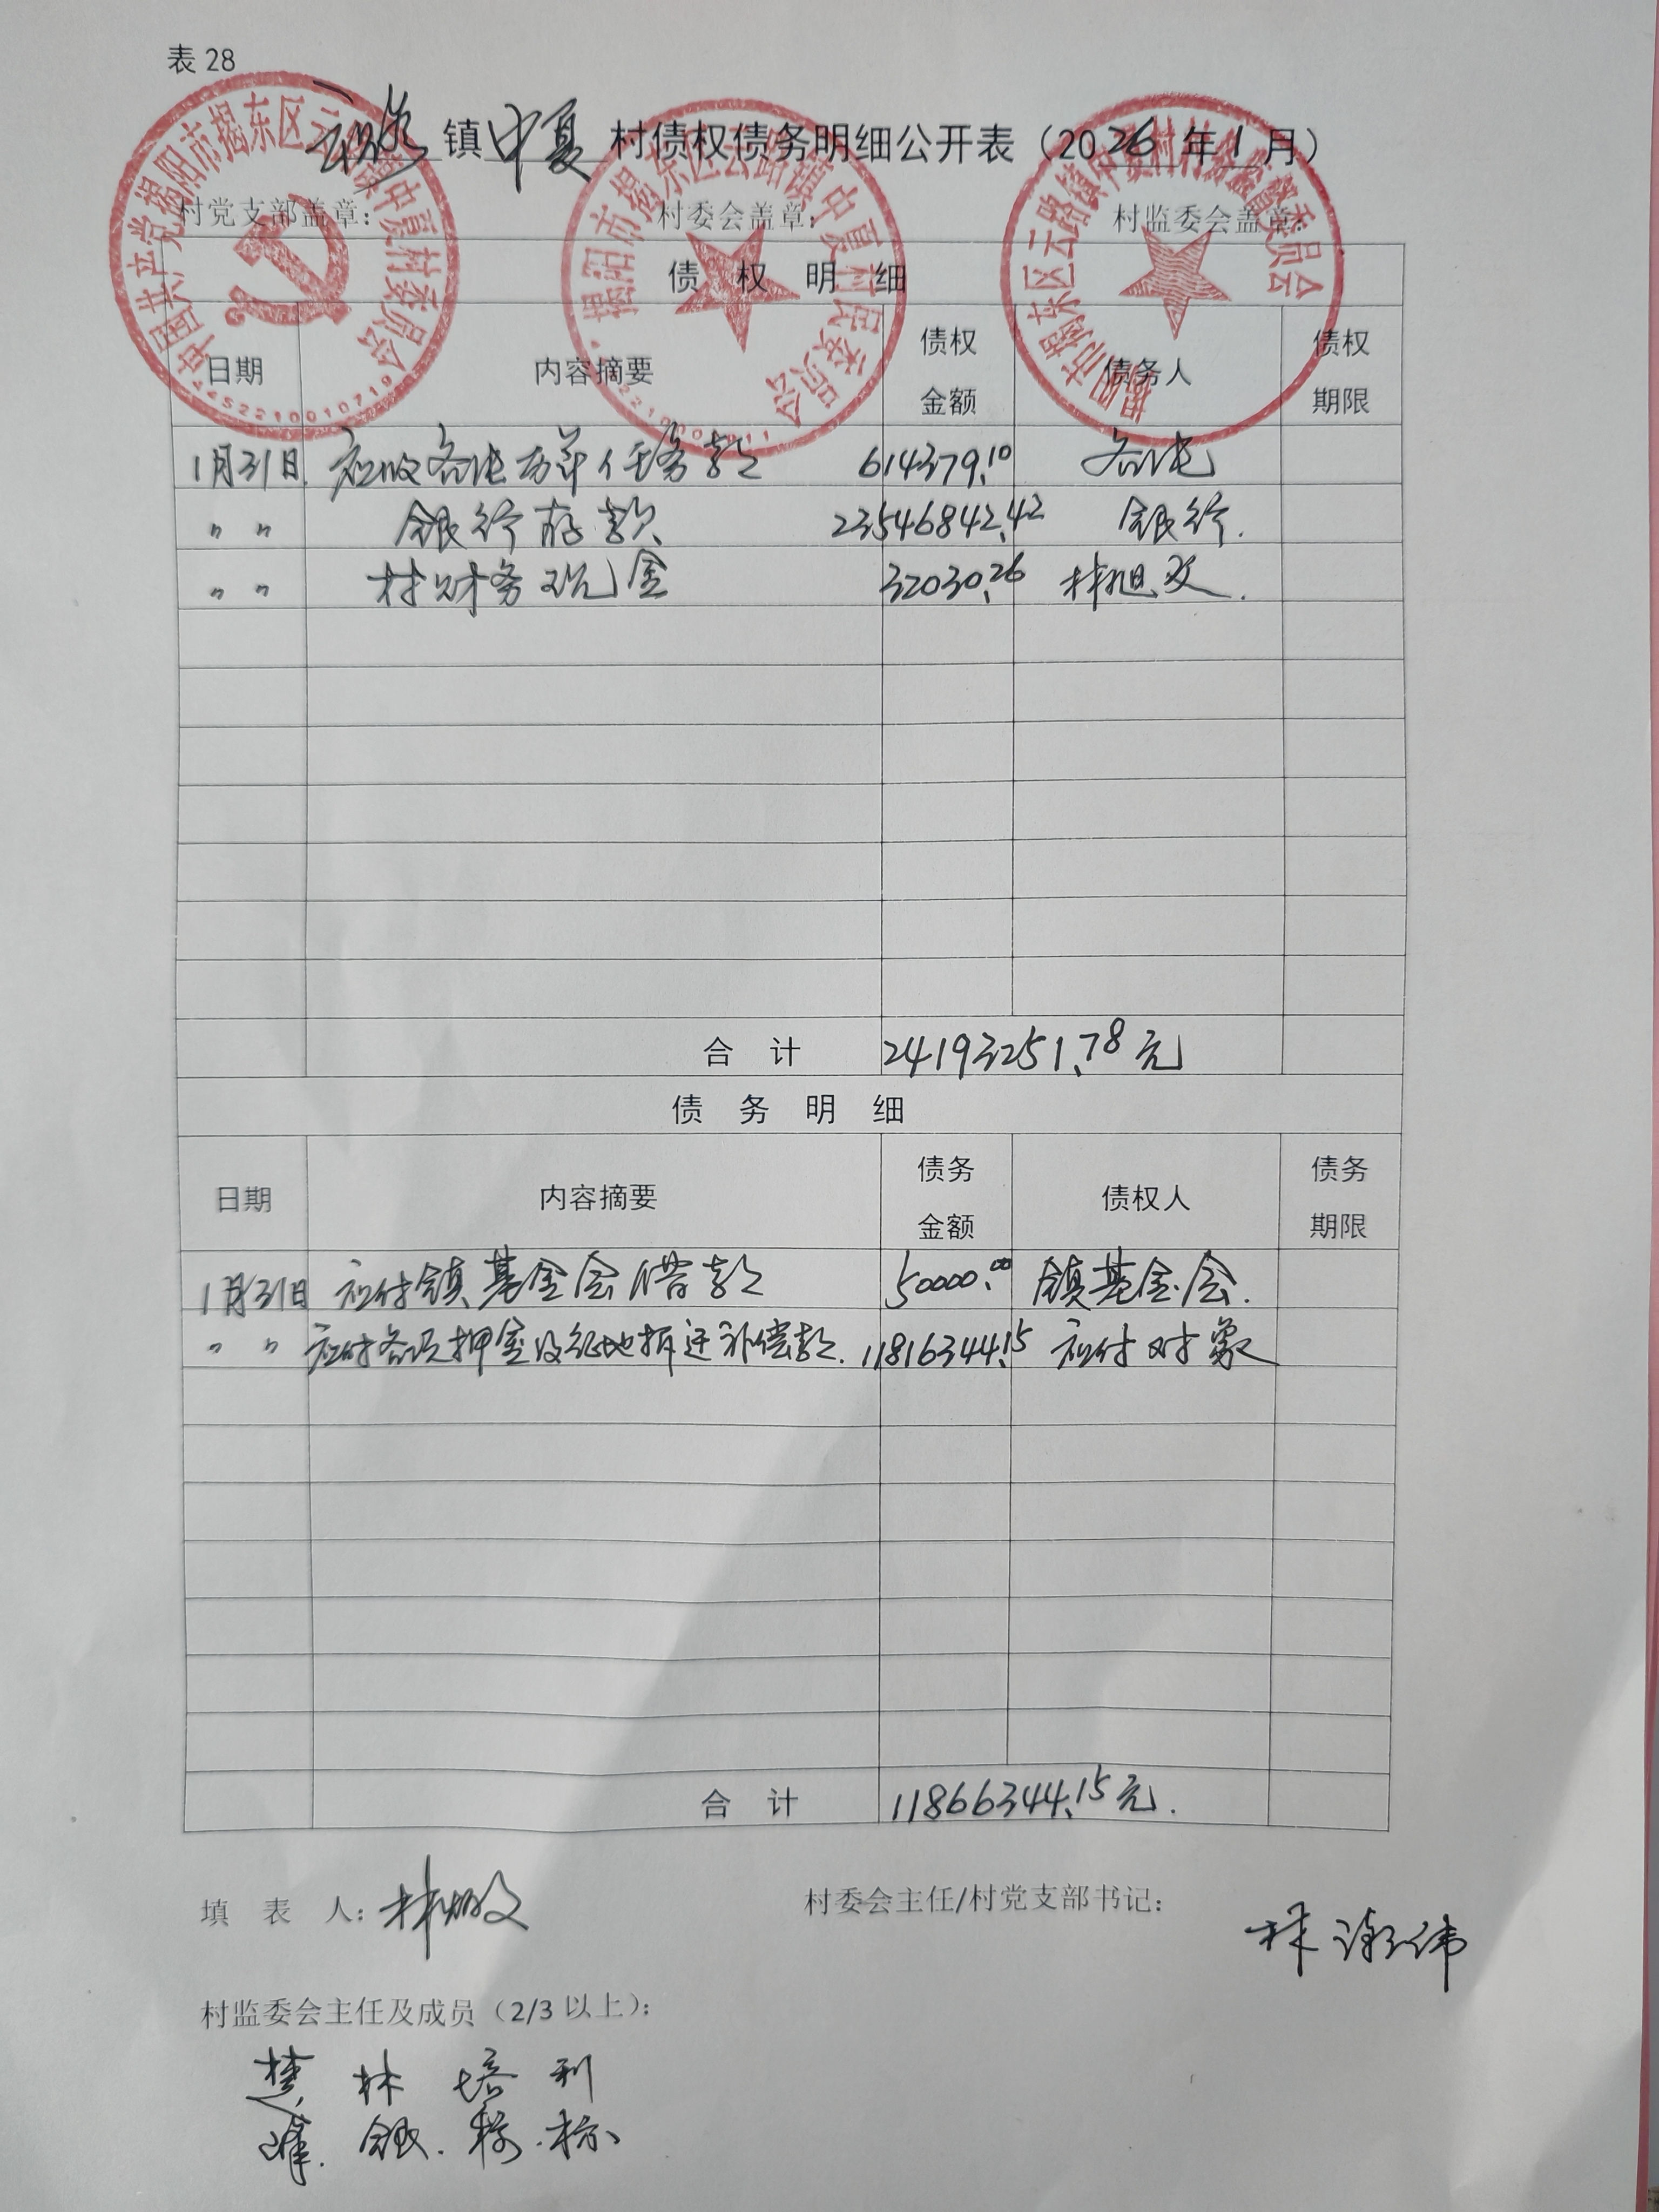 表 28
云路 镇 中夏 村债权债务明细公开表（2026 年 1 月）
村党支部盖章： 村委会盖章： 村监委会盖章：
中国共产党揭阳市揭东区云路镇中夏村委员会
4452210010719
揭阳市揭东区云路镇中夏村民委员会
揭阳市揭东区云路镇中夏村村务监督委员会
债 权 明 细
日期 内容摘要 债权金额 债务人 债权期限
1月31日 应收各 任务款 614379.10 各
〃 〃 银行存款 23546842.42 银行.
〃 〃 村财务现金 32030.26 林旭文.
合 计 24193251.78元
债 务 明 细
日期 内容摘要 债务金额 债权人 债务期限
1月31日 应付镇基金会借款 50000.00 镇基金会.
〃 〃 应付各项押金及征地拆迁补偿款. 11816344.15 应付对象
合 计 11866344.15元.
填 表 人： 林 文 村委会主任/村党支部书记：
林 伟
村监委会主任及成员（2/3 以上）：
楚 林 培 利
峰. 银. 标